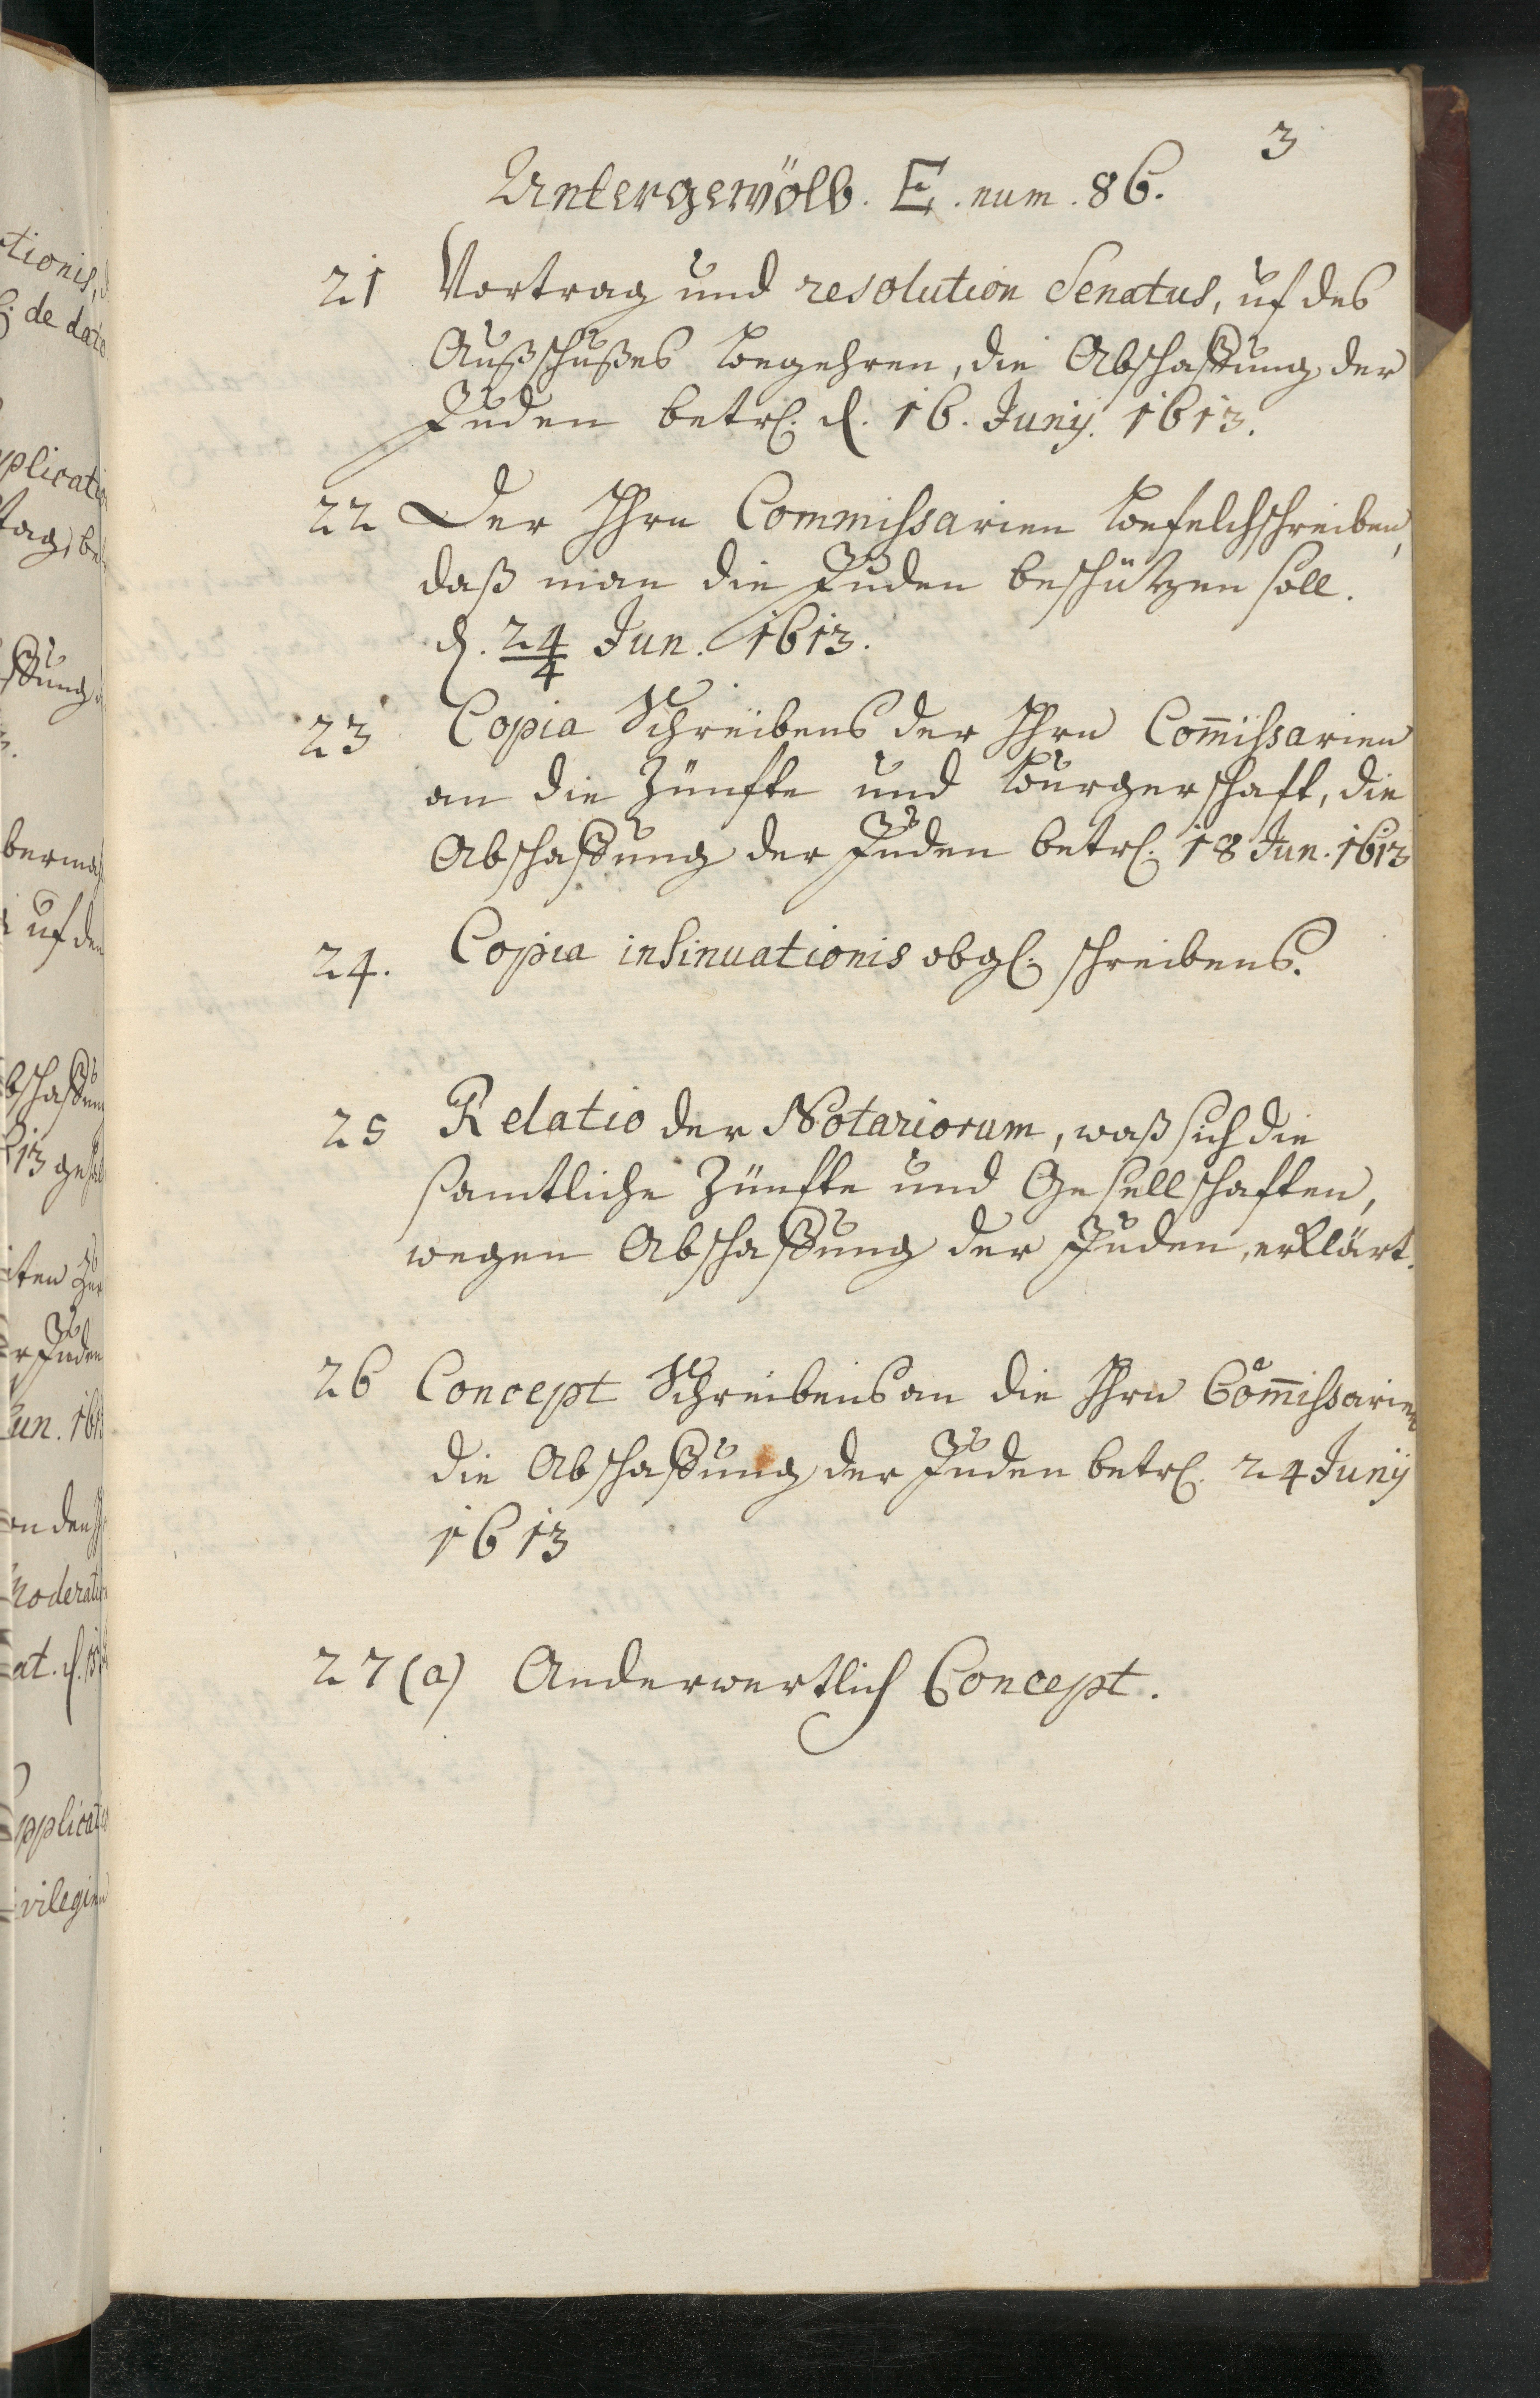 3
Untergewölb. E. num. 86.
21 Vortrag und resolution Senatus, uf des
Außschußes begehren, die Abschaffung der
Juden betr. d. 16. Junij. 1613.
22 Der Hhrn Commissarien befelchschreiben,
daß man die Juden beschützen soll.
d. 24/4 Jun. 1613.
23 Copia Schreibens der Hhrn Com̅issarien
an die Zünfte und burgerschaft, die
Abschaffung der Juden betr. 18 Jun. 1613
24. Copia insinuationis obgl. schreibens.
25 Relatio der Notariorum, waß sich die
samtliche Zünfte und Gesellschaften,
wegen Abschaffung der Juden, erklärt.
26 Concept Schreibens an die Hhrn Com̅issarien
die Abschaffung der Juden betr. 24 Junij
1613
27 (a) Anderwertlich Concept.